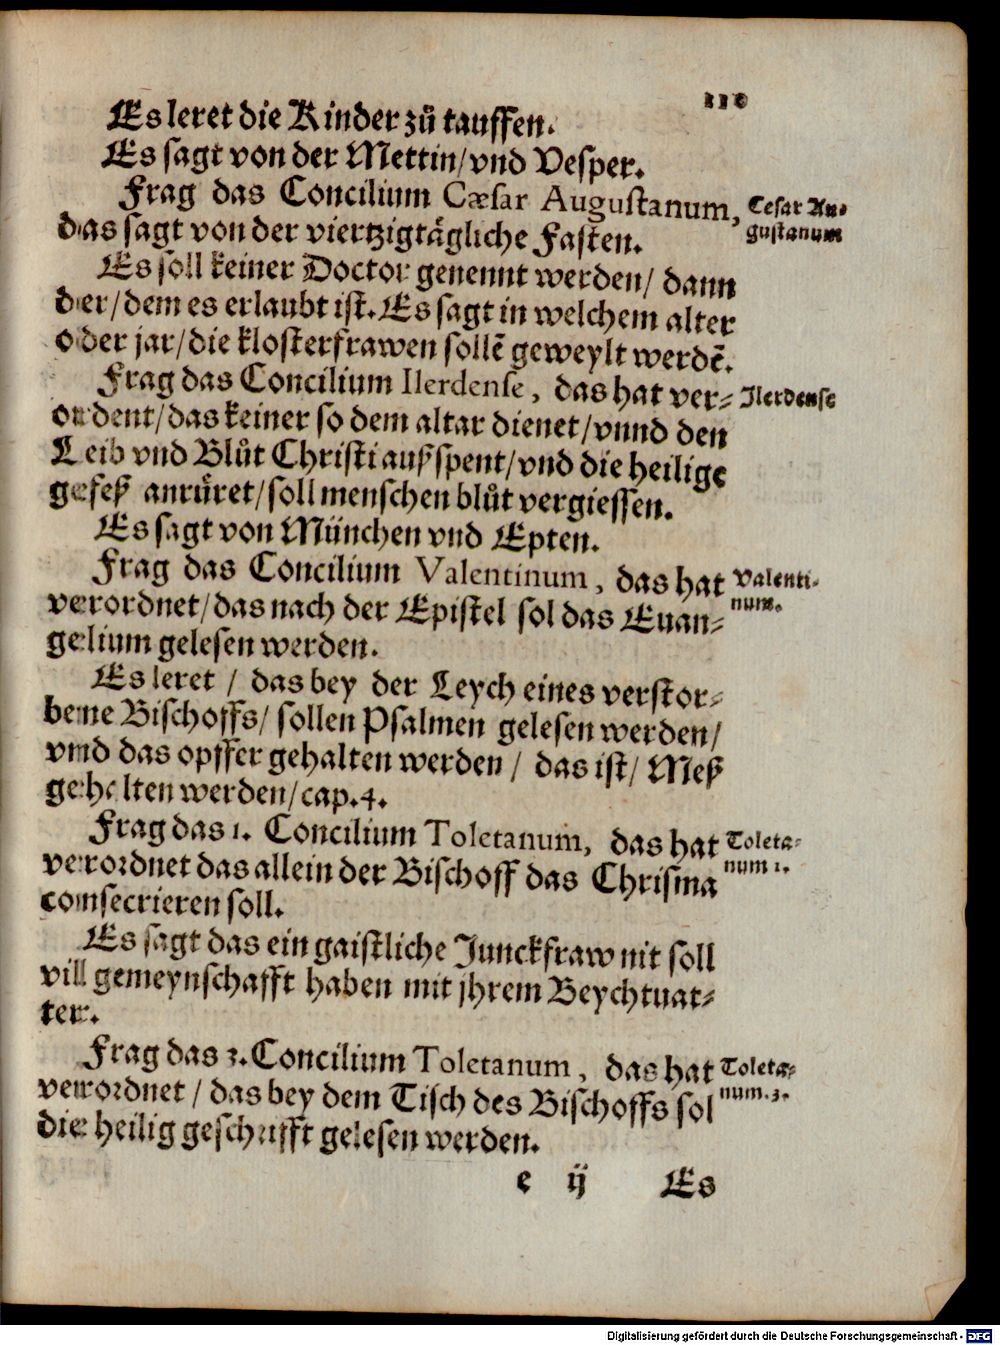 110
Es leret die Kinder zů tauffen.
Es sagt von der Mettin/vnd Vesper.
Frag das Concilium Cæsar Augustanum,
Cesar Au-
gustanum
das sagt von der viertzigtägliche Fasten.
Es soll keiner Doctor genennt werden/ dann
der/dem es erlaubt ist. Es sagt in welchem alter
oder jar/die klosterfrawen sollẽ geweylt werdẽ.
Frag das Concilium Ilerdense, das hat ver-
Ilerdense
ordent/das keiner so dem altar dienet/vnnd den
Leib vnd Blůt Christi außspent/vnd die heilige
gefeß anrüret/soll menschen blůt vergiessen.
Es sagt von München vnd Epten.
Frag das Concilium Valentinum, das hat
Valenti-
num.
verordnet/das nach der Epistel sol das Euan-
gelium gelesen werden.
Es leret / das bey der Leych eines verstor-
bene Bischoffs/ sollen Psalmen gelesen werden/
vnd das opffer gehalten werden / das ist/ Meß
gehalten werden/cap.4.
Frag das 1. Concilium Toletanum, das hat
Toleta-
num 1.
verordnet das allein der Bischoff das Chrisma
consecrieren soll.
Es sagt das ein gaistliche Junckfraw nit soll
vill gemeynschafft haben mit jhrem Beychtuat-
ter.
Frag das 3. Concilium Toletanum, das hat
Toleta-
num.3.
verordnet / das bey dem Tisch des Bischoffs sol
die heilig geschrifft gelesen werden.
e ij Es
Digitalisierung gefördert durch die Deutsche Forschungsgemeinschaft - DFG